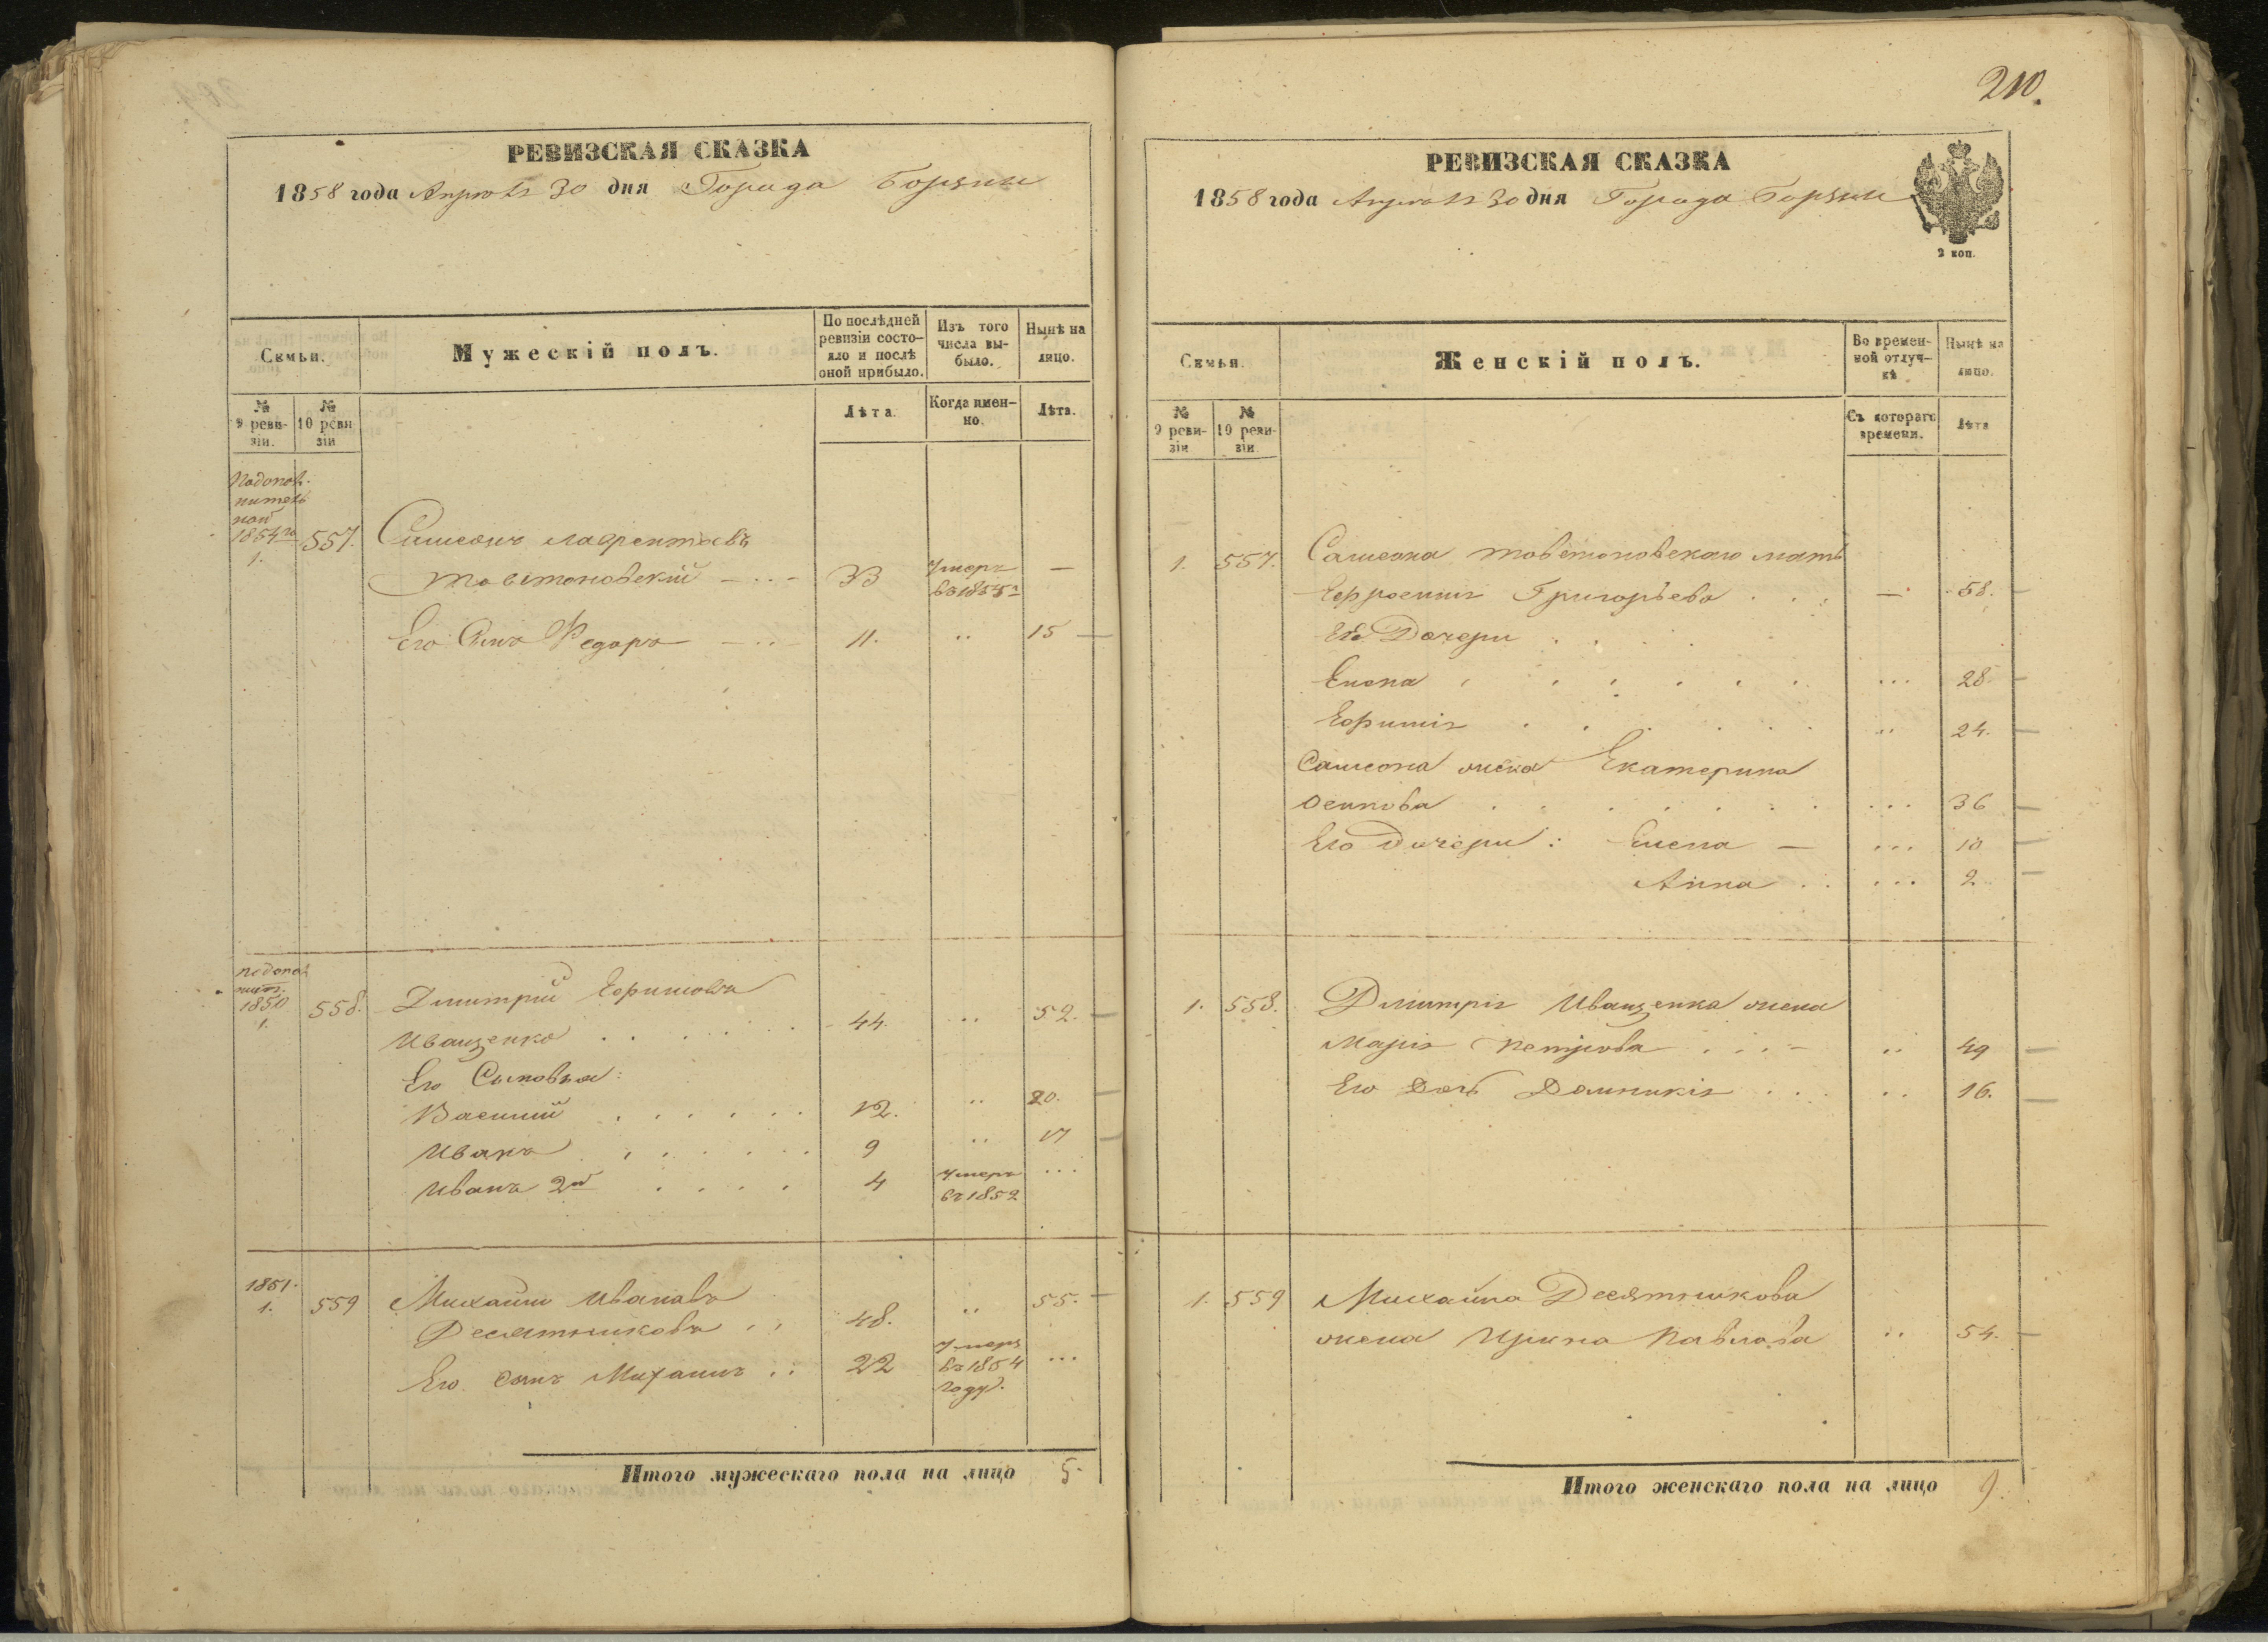 210.
РЕВИЗСКАЯ СКАЗКА
1858 года Апреля 30 дня Города Борзни
Семьи.
Мужескій полъ.
По послѣдней ревизіи состояло и послѣ оной прибыло.
Изъ того числа выбыло.
Нынѣ на лицо.
№ 9 ревизіи.
№ 10 ревизіи
Лѣта.
Когда именно.
Лѣта.
Подополнительной 1854го
1. 557. Самсонъ Лаврентьевъ
Товстоновскій 33 Умеръ въ 1855г —
Его Сынъ Федоръ 11. 15
Подополнит. 1850
1. 558. Дмитрій Ефимовъ
Иващенко 44 52.
Его Сыновья:
Василий 12. 20.
Иванъ 9 17
Иванъ 2й 4 Умеръ въ 1852
1851.
1. 559 Михайло Ивановъ
Десятниковъ 48. 55.
Его сынъ Михаилъ 22 Умеръ въ 1854 году.
Итого мужескаго пола на лицо 5.
РЕВИЗСКАЯ СКАЗКА
1858 года Апреля 30 дня Города Борзни
2 коп.
Семья.
Женскій полъ.
Во временной отлучкѣ
Нынѣ на лицо.
№ 9 ревизіи
№ 10 ревизіи.
Съ котораго времени.
Лѣта
1. 557. Самсона Товстоновскаго мать
Ефросинія Григорьева — 58.
Ее Дочери
Елена 28
Ефимія 24.
Самсона жена Екатерина
Осипова 36
Его Дочери: Елена 10
Анна 2
1. 558. Дмитрія Иващенка жена
Марія Петрова 49
Его Дочь Домникія 16.
1. 559 Михайла Десятникова
жена Ирина Павлова 54.
Итого женскаго пола на лицо 9.